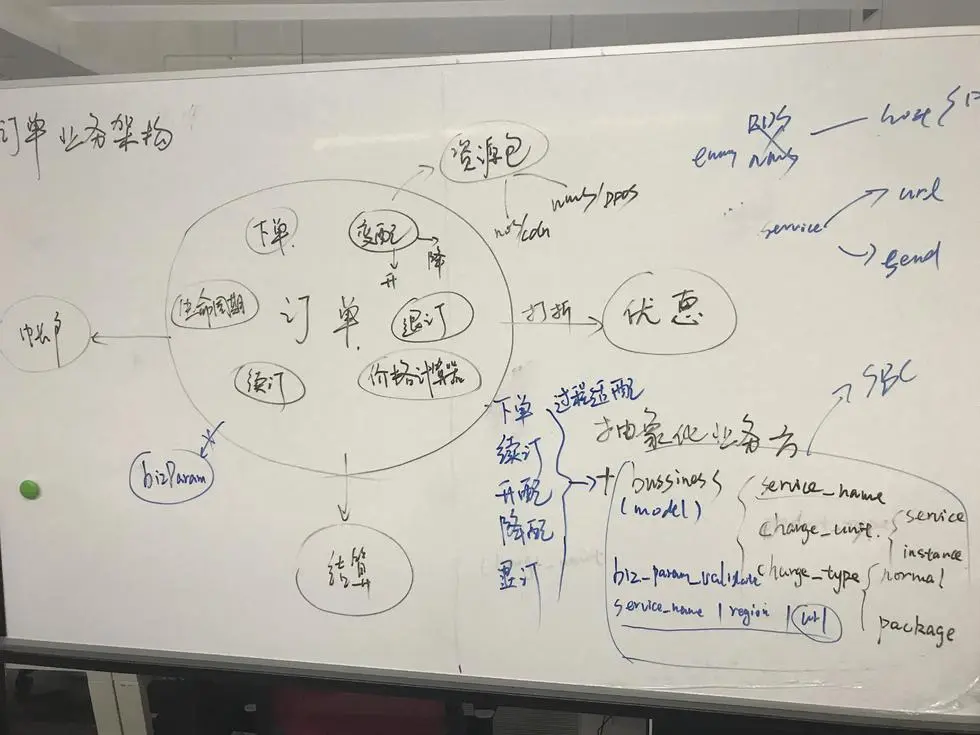 订单业务架构
资源包
nos/cdn
下单
变配
升
降
生命周期
订单
退订
续订
价格计算器
打折
优惠
bizParam
结算
service
url
send
SBC
下单
过程适配
续订
升配
降配
退订
抽象化业务方
bussiness
(model)
service_name
charge_unit
service
instance
charge_type
normal
package
biz_param_validate
service_name | region | url